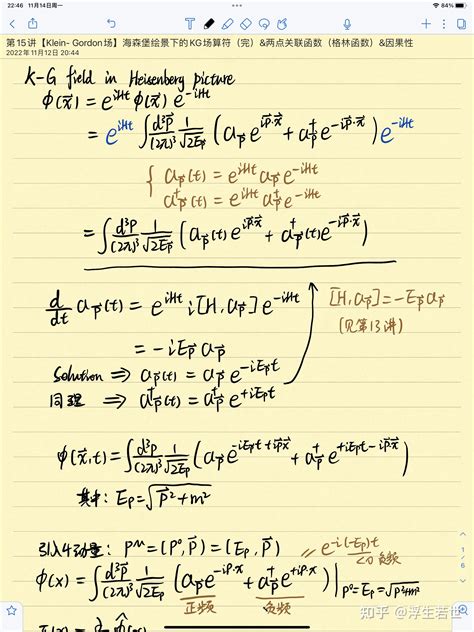 22:46 11月14日周一
84%
第15讲【Klein- Gordon场】海森堡绘景下的KG场算符（完）&两点关联函数（格林函数）&因果性
2022年11月12日 20:44
K-G field in Heisenberg picture
ϕ(x⃗) = e^{iHt} ϕ(x⃗) e^{-iHt}
= e^{iHt} ∫ d³p⃗/(2π)³ 1/√(2E_p) (a_p⃗ e^{ip⃗·x⃗} + a†_p⃗ e^{-ip⃗·x⃗}) e^{-iHt}
{ a_p⃗(t) = e^{iHt} a_p⃗ e^{-iHt}
a†_p⃗(t) = e^{iHt} a†_p⃗ e^{-iHt}
= ∫ d³p/(2π)³ 1/√(2E_p) (a_p⃗(t) e^{ip⃗·x⃗} + a†_p⃗(t) e^{-ip⃗·x⃗})
d/dt a_p⃗(t) = e^{iHt} i[H, a_p⃗] e^{-iHt}
[H, a_p⃗] = -E_p a_p⃗
(见第13讲)
= -iE_p a_p⃗
Solution ⇒ a_p⃗(t) = a_p⃗ e^{-iE_p t}
同理 ⇒ a†_p⃗(t) = a†_p⃗ e^{+iE_p t}
ϕ(x⃗,t) = ∫ d³p/(2π)³ 1/√(2E_p) (a_p⃗ e^{-iE_p t + ip⃗·x⃗} + a†_p⃗ e^{+iE_p t - ip⃗·x⃗})
其中: E_p = √(p⃗² + m²)
引入4动量: p^μ = (p⁰, p⃗) = (E_p, p⃗)
= e^{-i(-E_p)t}
<0 负频
ϕ(x) = ∫ d³p/(2π)³ 1/√(2E_p) (a_p⃗ e^{-ip·x} + a†_p⃗ e^{+ip·x})|_{p⁰=E_p=√(p⃗²+m²)}
正频 负频
1
6
知乎 @浮生若世